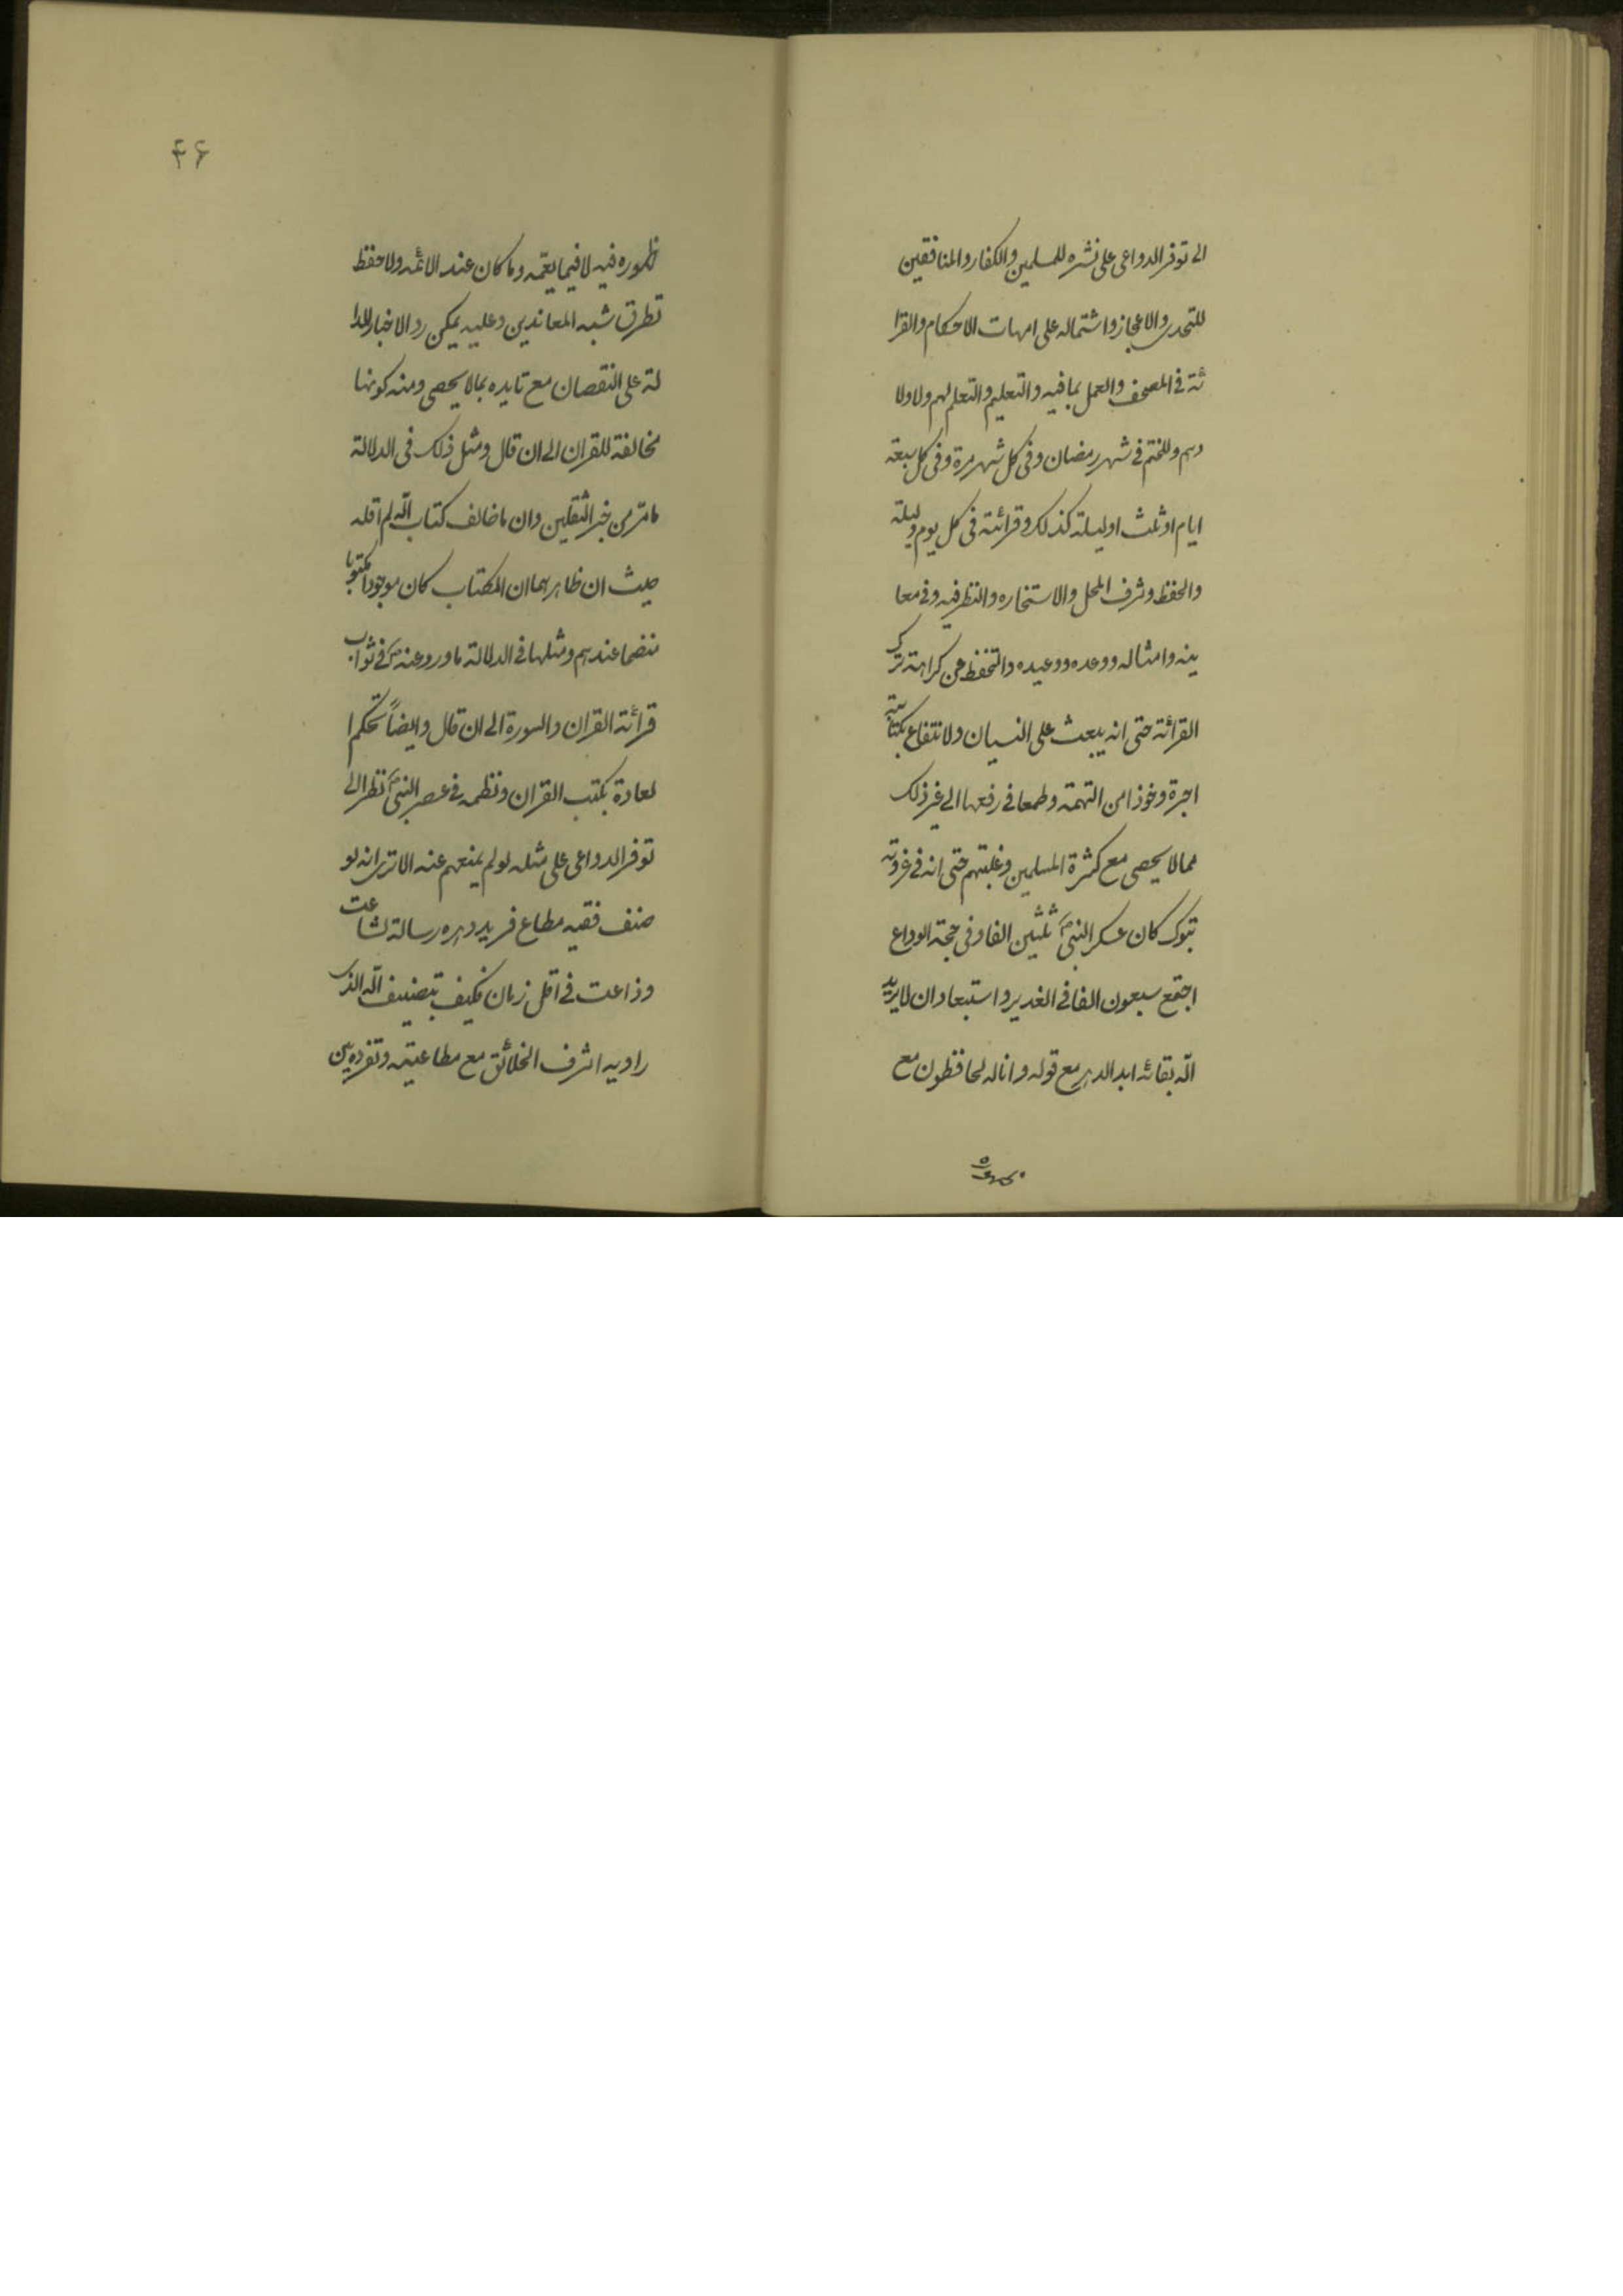 الى توفر الدواعى على نشره للمسلمين والكفار والمنافقين
للتحدى والاعجاز واشتماله على امهات الاحكام والقرا
ئة فى المصحف والعمل بما فيه والتعليم والتعلم لهم ولاولا
دهم وللختم فى شهر رمضان وفى كل شهر مرة وفى كل سبعة
ايام او ثلث او ليلة كذلك وقرائته فى كل يوم وليلة
والحفظ وشرف المحل والاستخاره والنظر فيه وفى معا
ينه وامثاله ووعده ووعيده والتحفظ عن كراهة ترك
القرائة حتى انه يبعث على النسيان ولانتفاع بكتابته
اجرة وخوذا من التهمة وطمعا فى رفعها الى غير ذلك
مما لا يحصى مع كثرة المسلمين وغلبتهم حتى انه فى غزوته
تبوك كان عسكر النبى ص ثلثين الفا وفى حجة الوداع
اجتمع سبعون الفا فى الغدير واستبعاد ان لا يريد
الله بقائه ابد الدهر مع قوله وانا له لحافظون مع
۴۶
ظهوره فيه لا فيما يعمّه وما كان عند الائمه ولا حفظ
تطرق شبه المعاندين وعليه يمكن رد الاخبار الدا
لة على النقصان مع تايده بما لا يحصى ومنه كونها
مخالفة للقران الى ان قال ومثل ذلك فى الدلالة
ما مرّ من خبر الثقلين وان ما خالف كتاب الله لم اقله
حيث ان ظاهرهما ان الكتاب كان موجودا مكتوبا
منضما عندهم ومثلها فى الدلالة ما ورد عنه ص فى ثواب
قرائة القران والسورة الى ان قال وايضاً تحكم ا
لعادة بكتب القران ونظمه فى عصر النبى ص نظرا الى
توفر الدواعى على مثله لو لم يمنعهم عنه الا ترى انه لو
صنف فقيه مطاع فريد دهره رسالة لشاعت
وذاعت فى اقل زمان فكيف بتصنيف الله الذى
راويه اشرف الخلائق مع مطاعيته وتفرده بين